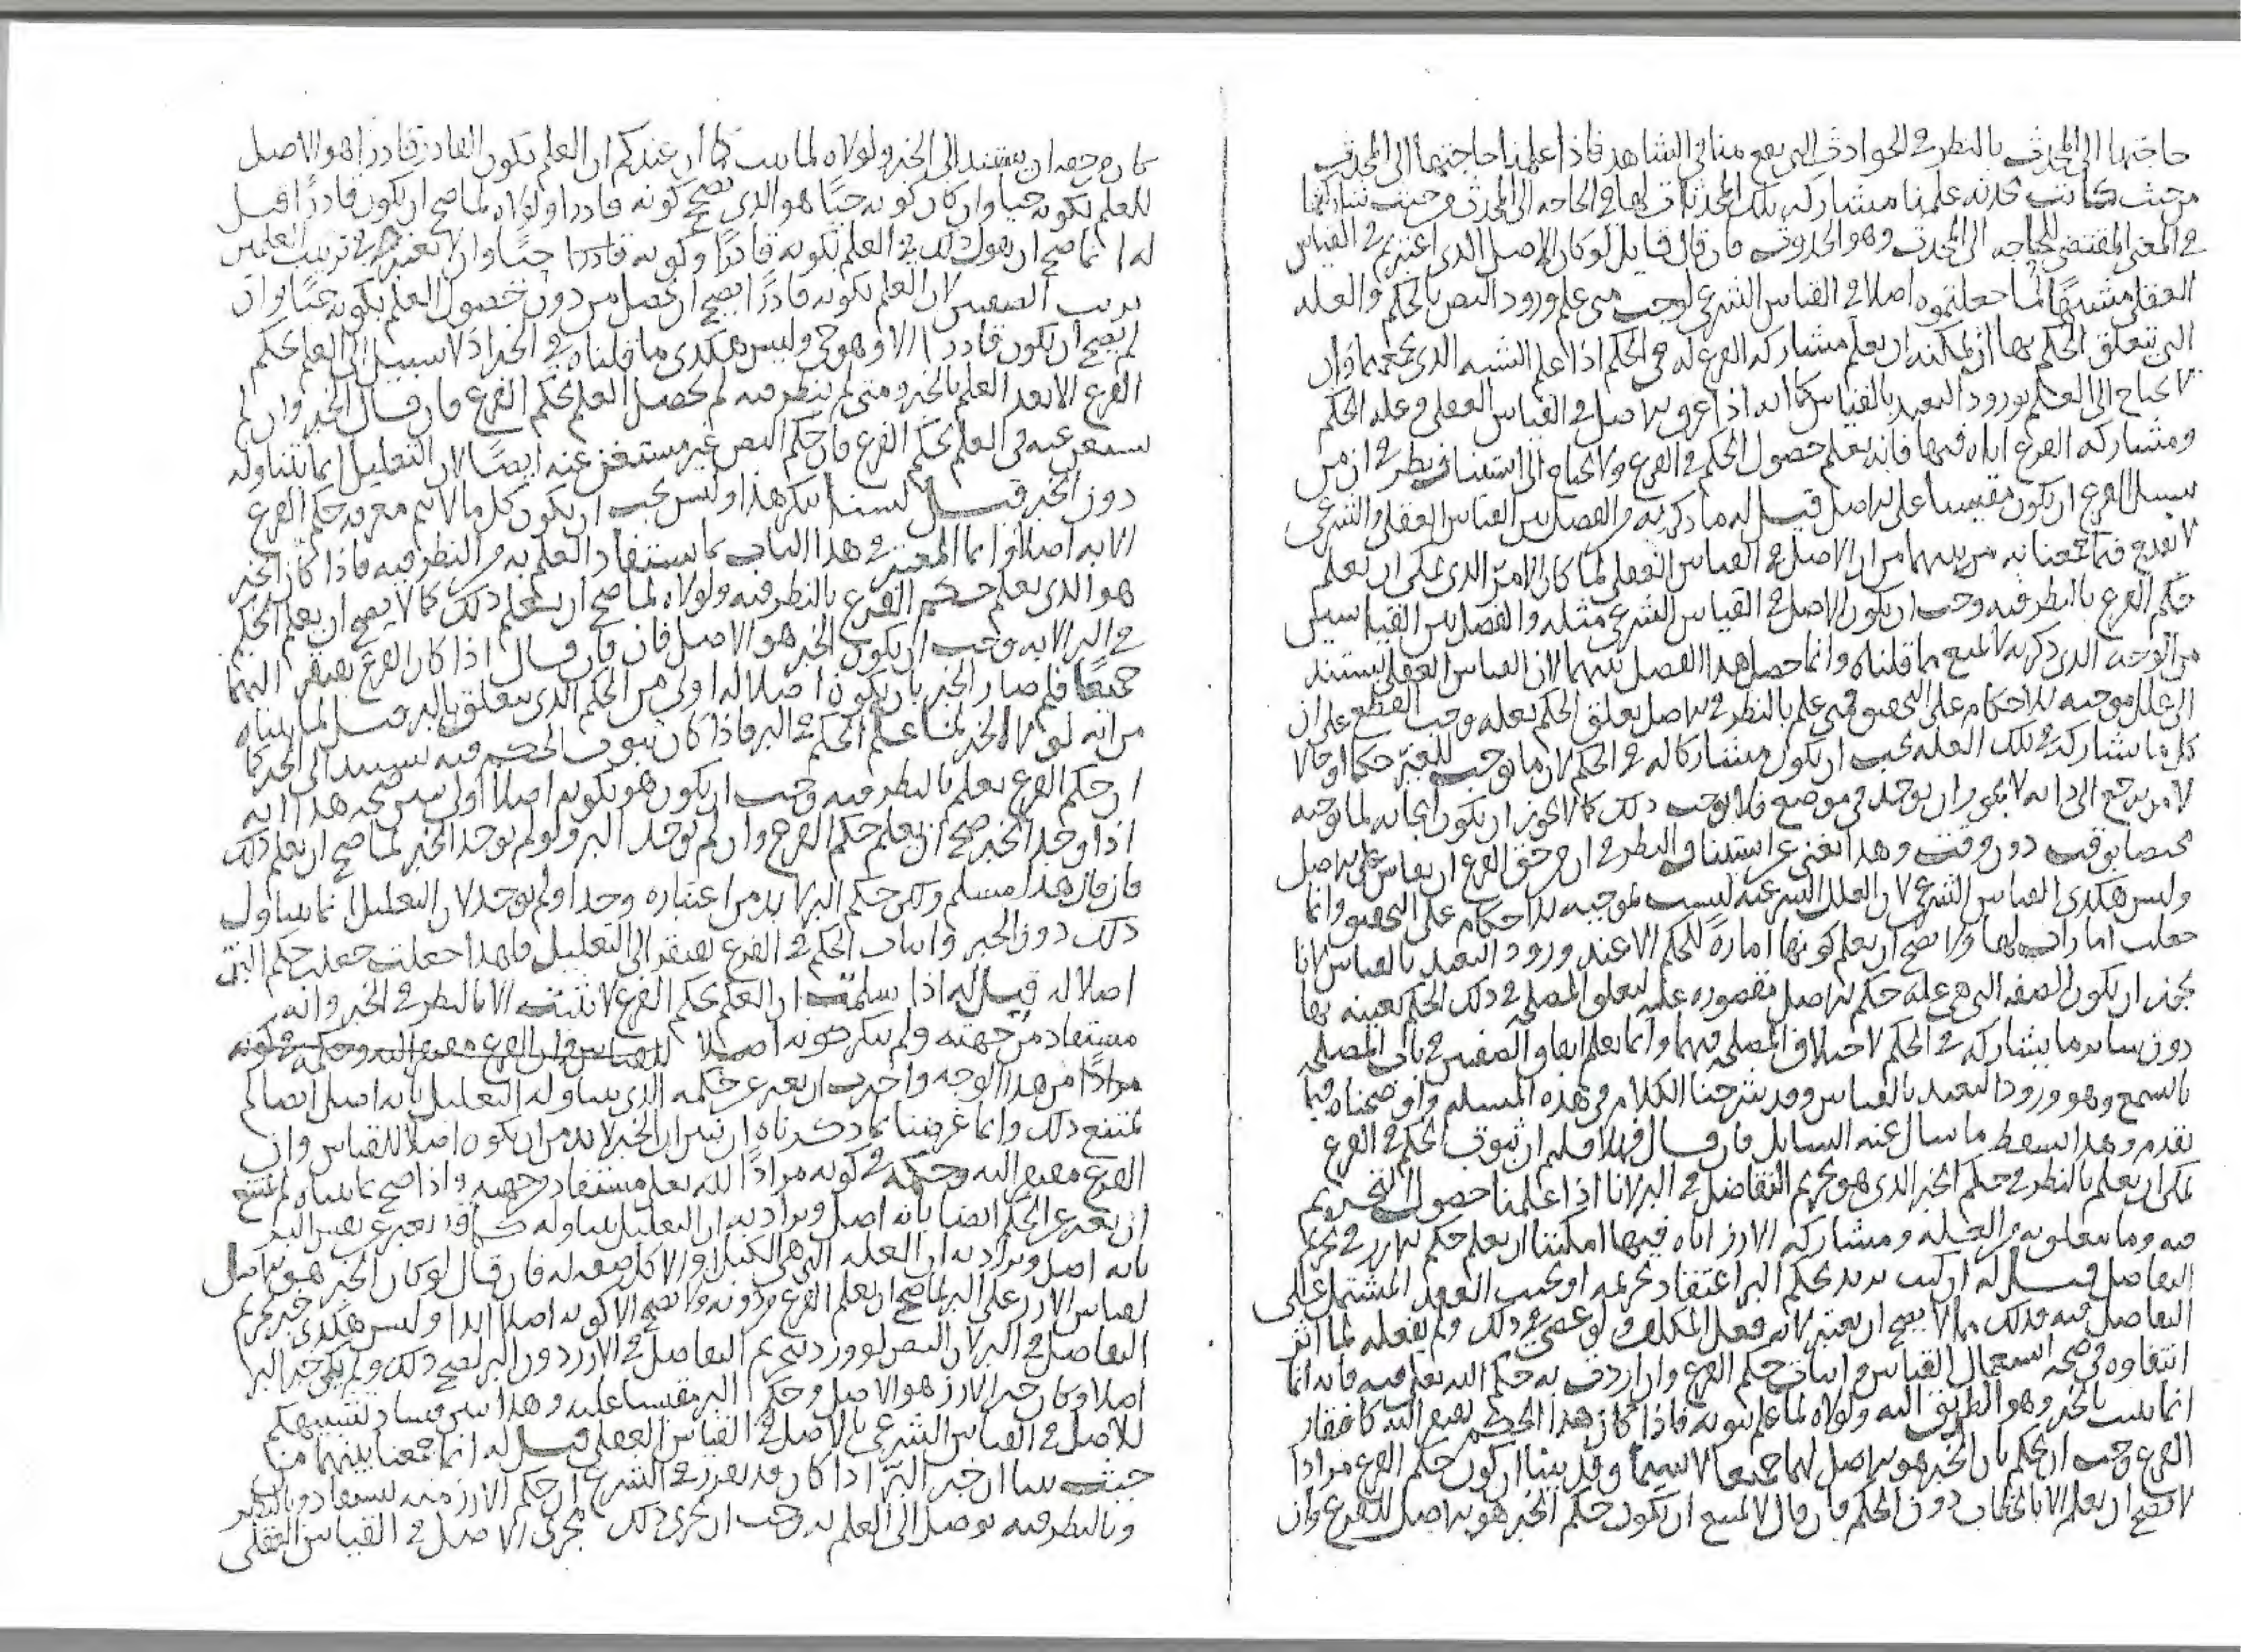 حاجتها الى المحدث بالنظر في الحوادث التي تقع منا في الشاهد فاذا علمنا حاجتها الى المحدث
من حيث كانت محدثه علمنا مشاركه تلك المحدثات لها في الحاجه الى المحدث من حيث شاركتها
في المعنى المقتضي للحاجه الى المحدث وهو الحدوث فان قال قايل لو كان الاصل الذي اعتبرتم في القياس
العقلي مشبها لما جعلتموه اصلا في القياس الشرعي لوجب متى علم ورود النص بالحكم والعله
التي يتعلق الحكم بها ان يمكنه ان يعلم مشاركه الفرع له في الحكم اذا علم الشبه الذي يجمعهما وان
لا يحتاج الى العلم بورود التعبد بالقياس كما انه اذا عرف الاصل في القياس العقلي وعله الحكم
ومشاركه الفرع اياه فيها فانه يعلم حصول الحكم في الفرع ولا يحتاج الى استيناف نظر في ان من
سبيل الفرع ان يكون مقيسا على الاصل قيل له ما ذكرته من الفصل بين القياس العقلي والشرعي
لا يقدح فيما جمعنا به من بينهما من ان الاصل في القياس العقلي لما كان الامر الذي يمكن ان يعلم
حكم الفرع بالنظر فيه وجب ان يكون الاصل في القياس الشرعي مثله والفصل بين القياسين
من الوجه الذي ذكرته لا يمنع مما قلناه وانما حصل هذا الفصل بينهما لان القياس العقلي يستند
الى علل موجبه للاحكام على التحقيق فمتى علم بالنظر في الاصل تعلق الحكم بعله وجب القطع على ان
كل ما شاركه في تلك العله يجب ان يكون مشاركا له في الحكم لان ما يوجب للغير حكما او حالا
لامر يرجع الى ذاته لا يجوز ان يوجد في موضع فلا يوجب ذلك كما لا يجوز ان يكون ايجابه لما يوجبه
مختصا بوقت دون وقت وهذا يغني عن استيناف النظر في ان من حق الفرع ان يقاس على الاصل
وليس هكذى القياس الشرعي لان العلل الشرعيه ليست بموجبه للاحكام على التحقيق وانما
جعلت امارات لها ولا يصح ان يعلم كونها امارة للحكم الا عند ورود التعبد بالقياس لانا
نجوز ان يكون الصفه التي هي عله حكم الاصل مقصوره عليه لتعلق المصلحه في ذلك الحكم بعينه بها
دون ساير ما يشاركه في الحكم لاختلاف المصلحه فيهما وانما يعلم اتفاق الصفتين في باب المصلحه
بالسمع وهو ورود التعبد بالقياس وقد شرحنا الكلام في هذه المسله واوضحناه فيما
تقدم وهذا يسقط ما سال عنه السايل فان قال فهلا قلتم ان ثبوت الحكم في الفرع
يمكن ان يعلم بالنظر في حكم الخبر الذي هو تحريم التفاضل في البر لانا اذا علمنا حصول التحريم
فيه وما تعلق به من العله ومشاركه الارز اياه فيها امكننا ان يعلم حكم الارز في تحريم
التفاضل قيل له ان كنت تريد بحكم البر اعتقاد تحريمه او تجنب العقد المشتمل على
التفاضل فيه فذلك مما لا يصح ان يعتبر لانه فعل المكلف ولو عصى في ذلك ولم يفعله لما اثر
انتفاوه في صحه استعمال القياس واثبات حكم الفرع وان اردت به حكم الله تعلى فيه فانه انما
انما يثبت بالخبر وهو الطريق اليه ولولاه لما علم ثبوته فاذا كان هذا الحكم يفتقر اليه كافتقار
الفرع وجب ان يحكم بان الخبر هو الاصل لهما جميعا لا سيما وقد بينا ان كون حكم الفرع مرادا
لا يصح ان يعلم الا بالخطاب دون الحكم فان قال لا يمتنع ان يكون حكم الخبر هو الاصل للفرع وان
كان من حقه ان يستند الى الخبر ولولاه لما ثبت كما ان عندكم ان العلم بكون القادر قادرا هو الاصل
للعلم بكونه حيا وان كان كونه حيا هو الذي يصحح كونه قادرا ولولاه لما صح ان يكون قادرا قيل
له انما صح ان يقول ذلك في العلم بكونه قادرا وكونه قادرا حيا وان لا يعتبر في ترتيب العلمين
ترتيب الصفتين لان العلم بكونه قادرا يصح ان يحصل من دون حصول العلم بكونه حيا وان
لم يصح ان يكون قادرا الا وهو حي وليس هكدى ما قلناه في الخبر اذ لا سبيل الى العلم بحكم
الفرع الا بعد العلم بالخبر ومتى لم ينظر فيه لم يحصل العلم بحكم الفرع فان قال الخبر وان لم
يستغن عنه في العلم بحكم الفرع فان حكم النص غير مستغن عنه ايضا لان التعليل انما يتناوله
دون الخبر قيل لسنا ننكر هذا وليس يجب ان يكون كل ما لا يتم معرفه حكم الفرع
الا به اصلا وانما المعتبر في هذا الباب بما يستفاد العلم به من النظر فيه فاذا كان الخبر
هو الذي يعلم حكم الفرع بالنظر فيه ولولاه لما صح ان يعلم ذلك كما لا يصح ان يعلم الحكم
في البر الا به وجب ان يكون الخبر هو الاصل فان قال اذا كان الفرع يفتقر اليهما
جميعا فلم صار الخبر بان يكون اصلا له اولى من الحكم الذي يتعلق بالبر قيل لما بيناه
من انه لولا الخبر لما علم الحكم في البر فاذا كان ثبوت الحكم فيه يستند الى الخبر كما
ان حكم الفرع يعلم بالنظر فيه وجب ان يكون هو بكونه اصلا اولى يبين صحه هذا انه
اذا وجد الخبر صح ان يعلم حكم الفرع وان لم يوجد البر ولو لم يوجد الخبر لما صح ان يعلم ذلك
فان قال هذا مسلم ولكن حكم البر لا بد من اعتباره وجد او لم يوجد لان التعليل انما يتناول
ذلك دون الخبر واثبات الحكم في الفرع يفتقر الى التعليل فلهذا جعلت حكم البر
اصلا له قيل له اذا سلمت ان العلم بحكم الفرع لا يثبت الا بالنظر في الخبر وانه
مستفاد من جهته ولم تنكر كونه اصلا للقياس وان الفرع مفتقر اليه وحكمه في كونه
مرادا من هذا الوجه واخترت ان يعبر عن حكمه الذي يتناوله التعليل بانه اصل ايضا لم
يمتنع ذلك وانما غرضنا بما ذكرناه ان نبين ان الخبر لا بد من ان يكون اصلا للقياس وان
الفرع مفتقر اليه وحكمه في كونه مرادا لله تعلى مستفاد من جهته واذا صح ما بيناه لم يمتنع
ان يعبر عن الحكم ايضا بانه اصل ويراد به ان التعليل يتناوله كما قد يعبر عن نفس البر
بانه اصل ويراد به ان العله التي هي الكيل او الاكل صفه له فان قال لو كان الخبر هو الاصل
لقياس الارز على البر لما صح ان يعلم الفرع من دونه ولا يصح الا كونه اصلا ابدا وليس هكدى خبر تحريم
التفاضل في البر لان النص لو ورد بتحريم التفاضل في الارز دون البر لصح ذلك ولم يكن خبر البر
اصلا وكان خبر الارز هو الاصل وحكم البر مقيسا عليه وهذا يبين فساد تشبيهكم
للاصل في القياس الشرعي بالاصل في القياس العقلي قيل له انما جمعنا بينهما من
حيث بينا ان خبر البر اذا كان قد تقرر في الشرع ان حكم الارز منه يستفاد
وبالنظر فيه نوصل الى العلم به وجب ان يجري ذلك مجرى الاصل في القياس العقلي